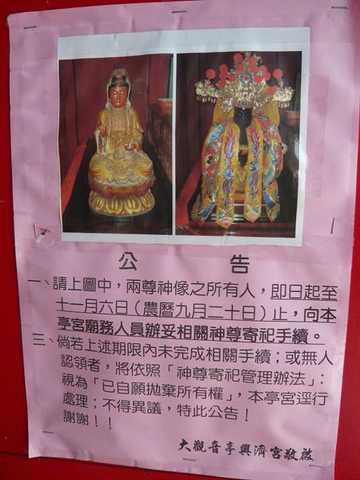 公告
一、請上圖中，兩尊神像之所有人，即日起至
十一月六日（農曆九月二十日）止，向本
亭宮廟務人員辦妥相關神尊寄祀手續。
三、倘若上述期限內未完成相關手續；或無人
認領者，將依照「神尊寄祀管理辦法」：
視為「已自願拋棄所有權」，本亭宮逕行
處理；不得異議，特此公告！
謝謝！！
大觀音亭興濟宮敬啟